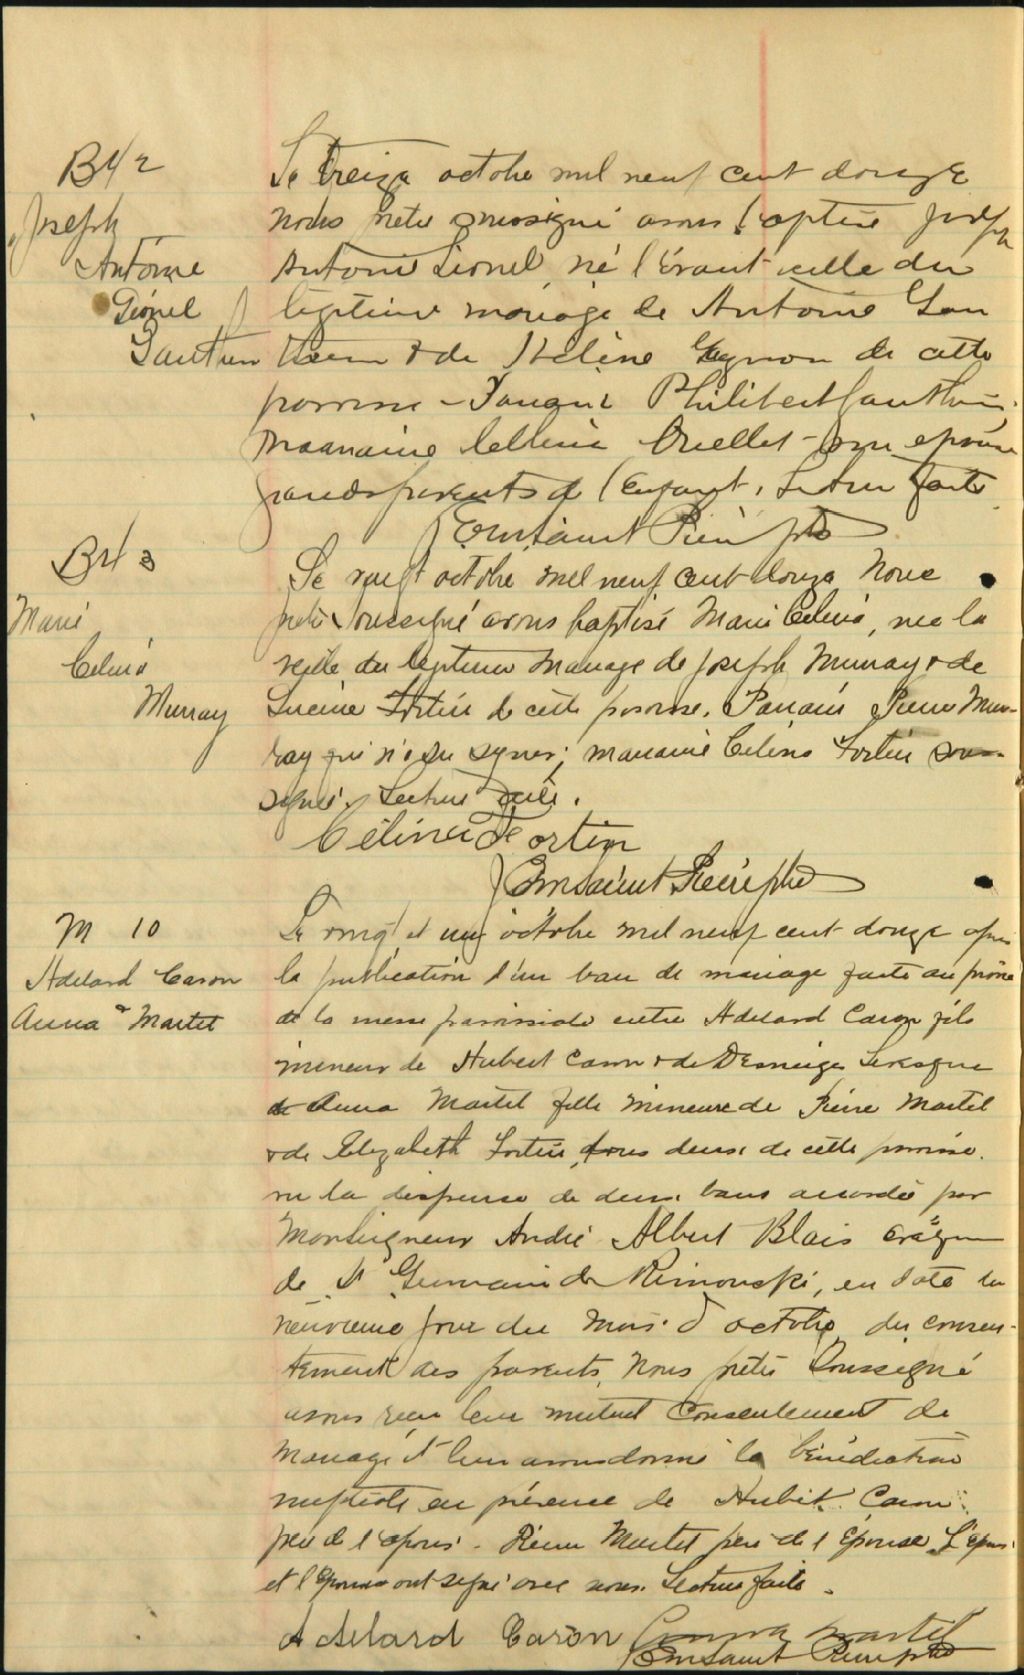 B42
Joseph
Antoine
Lionel
Gauthier
Le treize octobre mil neuf cent douze
nous prêtre soussigné avons baptisé Joseph
Antoine Lionel né l'avant veille du
légitime mariage de Antoine Gau
thier & de Hélène Gagnon de cette
paroisse - Parrain Philibert Gauthier
Marraine Célina Ouellet - son épouse
grands parents de l'enfant. Lecture faite
Saint Pierre ptre
B43
Marie
Celina
Murray
Le vingt octobre mil neuf cent douze Nous
prêtre soussigné avons baptisé Marie Celina, née la
veille du légitime mariage de Joseph Murray & de
Fortin de cette paroisse. Parrain Pierre Mur-
ray qui n'a su signer; marraine Celina Fortin sous-
signée. Lecture faite.
Célina Fortin
Saint Pierre ptre
M 10
Adelard Caron
&
Anna Martel
Le vingt et un octobre mil neuf cent douze après
la publication d'un ban de mariage faite au prône
de la messe paroissiale entre Adelard Caron fils
mineur de Hubert Caron & de Desneiges Levesque
& Anna Martel fille mineure de Pierre Martel
& de Elizabeth Fortin, tous deux de cette paroisse.
vu la dispense de deux bans accordée par
Monseigneur André Albert Blais évêque
de St Germain de Rimouski, en date du
neuvième jour du mois d'octobre, du consen-
tement des parents, Nous prêtre soussigné
avons reçu leur mutuel consentement de
mariage et leur avons donné la bénédiction
nuptiale en présence de Hubert Caron
père de l'époux - Pierre Martel père de l'épouse L'époux
et l'épouse ont signé avec nous. Lecture faite.
Adelard Caron Anna Martel
Saint Pierre ptre